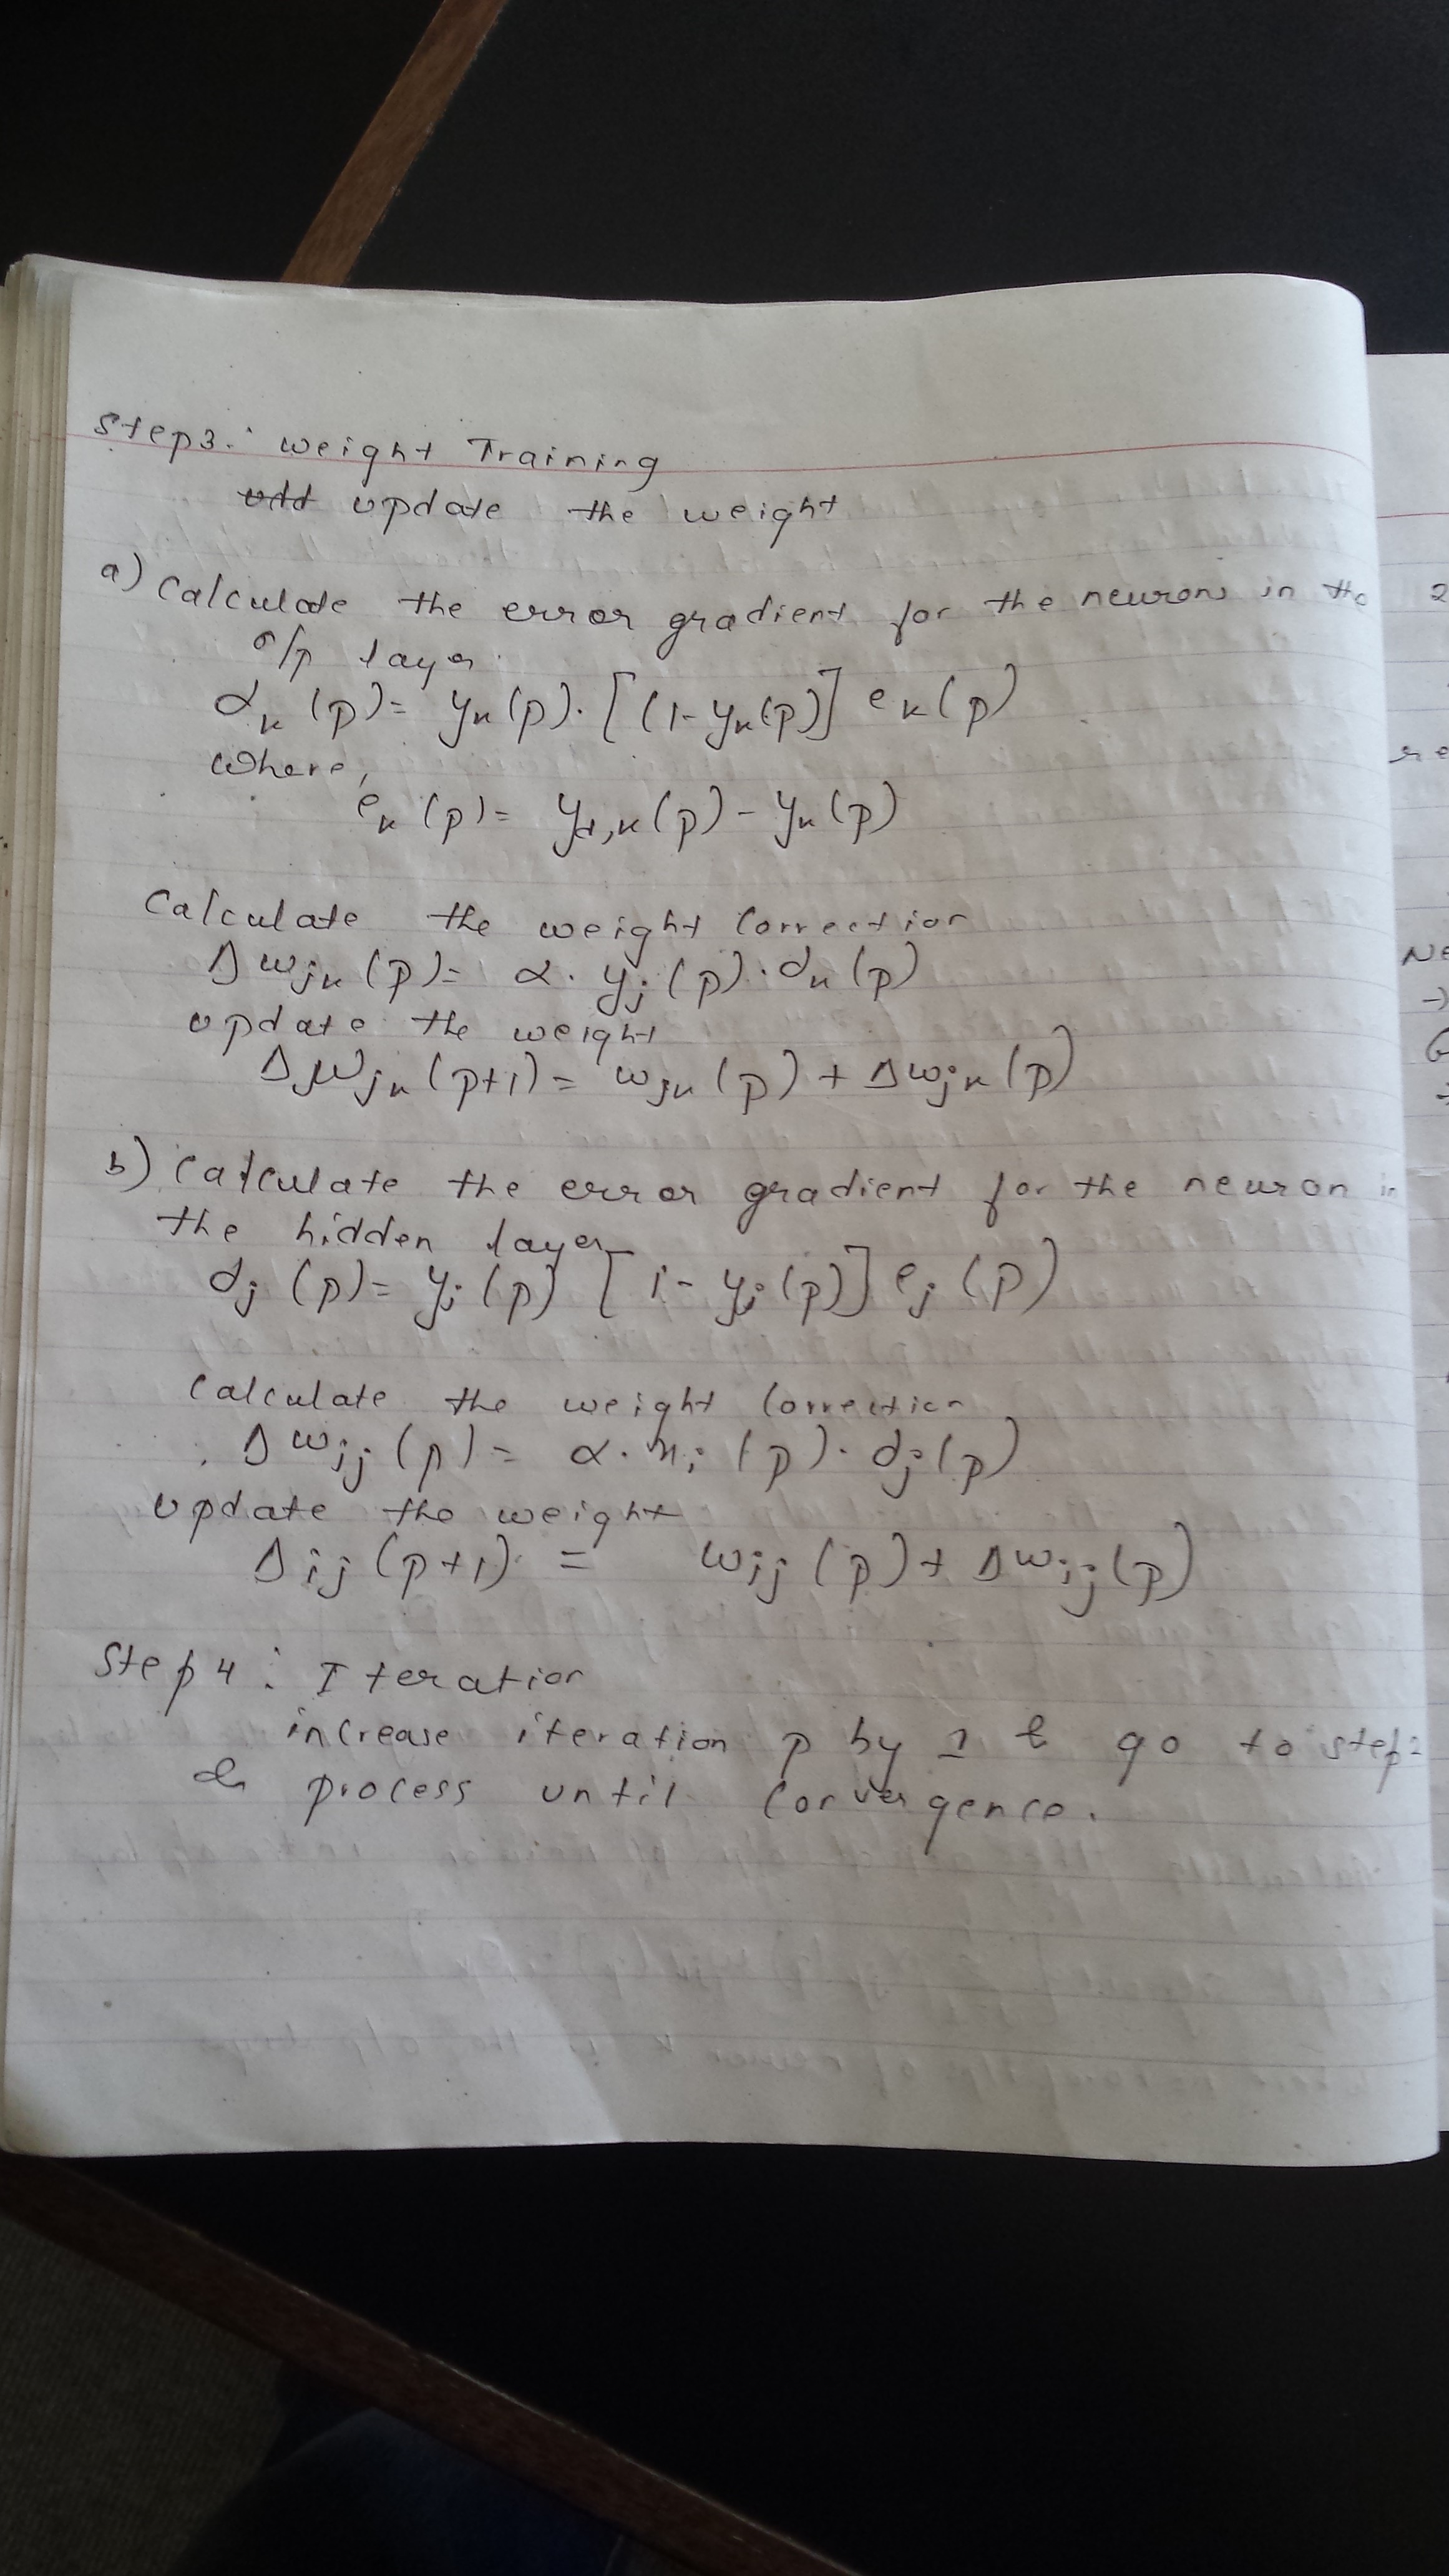 Step3: Weight Training
update the weight
a) Calculate the error gradient for the neurons in the
o/p layer.
δk (p) = yk (p) · [(1 - yk (p)] ek (p)
Where,
ek (p) = yd,k (p) - yk (p)
Calculate the weight correction
Δ wjk (p) = α · yj (p) · δk (p)
update the weight
Δ wjk (p+1) = wjk (p) + Δ wjk (p)
b) Calculate the error gradient for the neuron in
the hidden layer
δj (p) = yj (p) [1 - yj (p)] ej (p)
Calculate the weight correction
Δ wij (p) = α · xi (p) · δj (p)
update the weight
Δ ij (p+1) = wij (p) + Δ wij (p)
Step 4: Iteration
increase iteration p by 1 & go to step 2
& process until convergence.